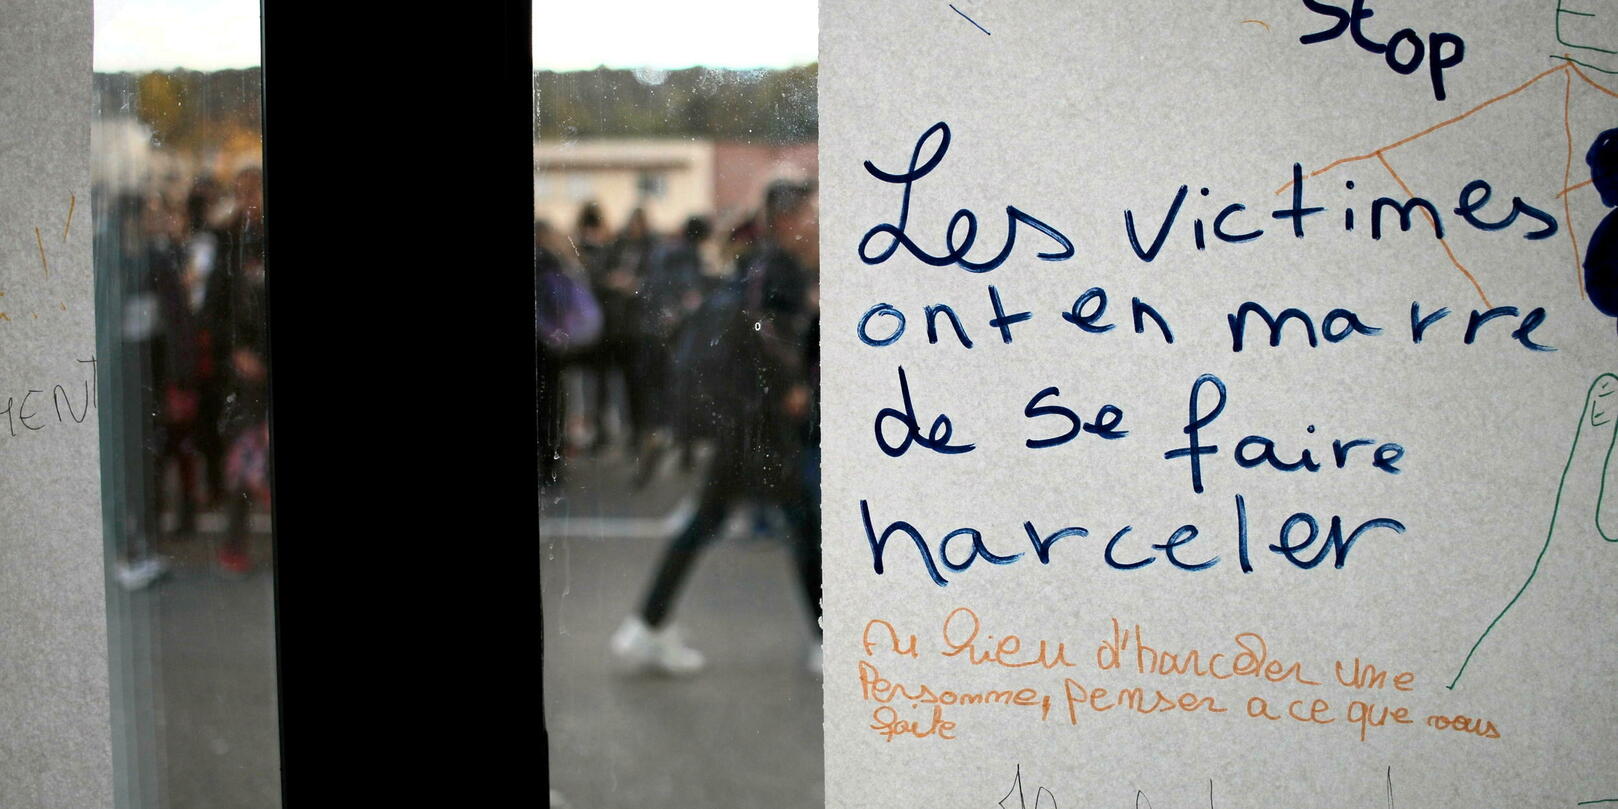 Stop
Les victimes
ont en marre
de se faire
harceler
Au lieu d'harceler une
Personne, penser a ce que vous
faite
MENT